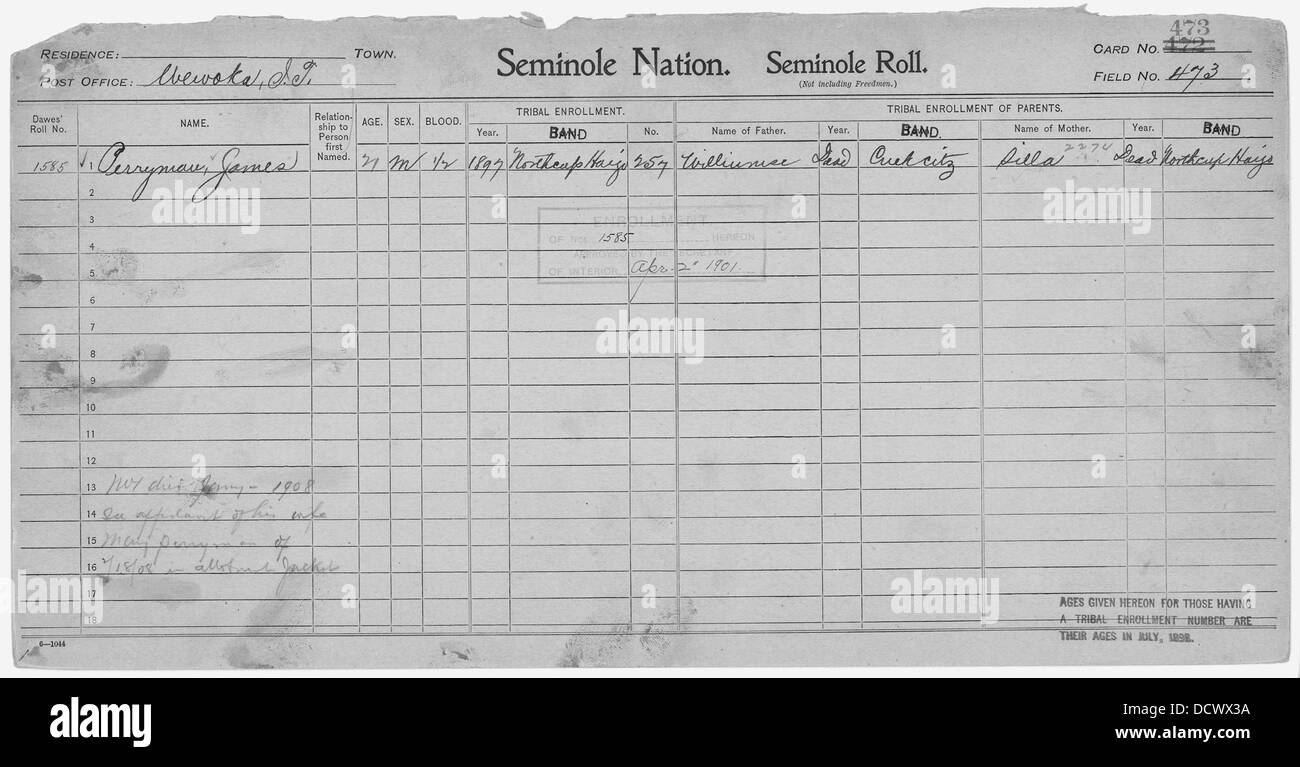 473
RESIDENCE: TOWN.
Seminole Nation. Seminole Roll.
CARD NO. 472
POST OFFICE: Wewoka, I.T.
(Not including Freedmen.)
FIELD NO. 473
Dawes' Roll No. NAME. Relationship to Person first Named. AGE. SEX. BLOOD. TRIBAL ENROLLMENT. TRIBAL ENROLLMENT OF PARENTS.
Year. BAND No. Name of Father. Year. BAND Name of Mother. Year. BAND
1585 √ 1 Perryman, James 21 M 1/2 1897 Northcup Hajo 257 Dead Creek citz Silla 2274 Dead Northcup Hajo
2
3
ENROLLMENT
OF NOS. 1585 HEREON
4
APPROVED BY THE SECRETARY
OF INTERIOR Apr. 2 1901.
5
6
7
8
9
10
11
12
13 No 1 died - 1908
14 See affidavit of his wife
15 Mary Perryman of
16 2/18/08 in allotment Jacket
17
18
AGES GIVEN HEREON FOR THOSE HAVING
A TRIBAL ENROLLMENT NUMBER ARE
THEIR AGES IN JULY, 1898.
6—1044
a alamy stock photo
DCWX3A
www.alamy.com